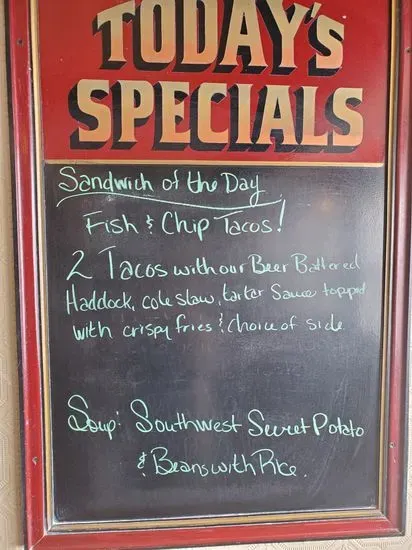 TODAY'S
SPECIALS
Sandwich of the Day
Fish & Chip Tacos!
2 Tacos with our Beer Battered
Haddock, cole slaw, tartar Sauce topped
with crispy fries & choice of side
Soup: Southwest Sweet Potato
& Beans with Rice.